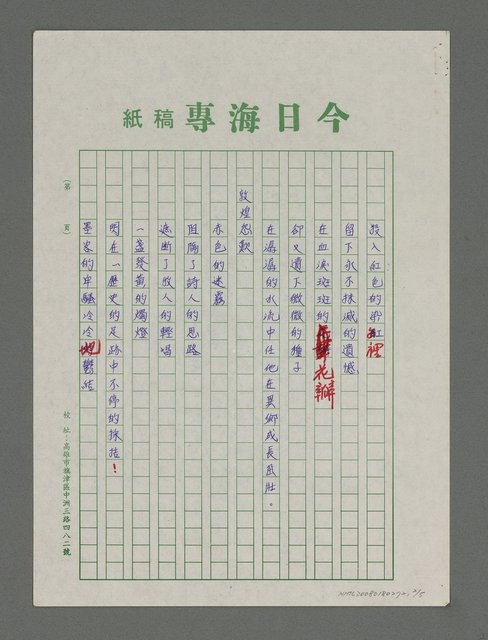 今日海專稿紙
投入紅色的
留下永不抹滅的遺憾
在血淚斑斑的花瓣
卻又遺下微微的種子
在潺潺的水流中任他在異鄉成長茁壯。
敦煌悲歎
赤色的迷霧
阻隔了詩人的思路
遮斷了牧人的輕唱
一盞發黃的燭燈
閃在一歷史的足跡中不停的採拮!
墨客的牢騷冷冷地鬱結
(第 頁)
校址:高雄市旗津區中洲三路四八二號